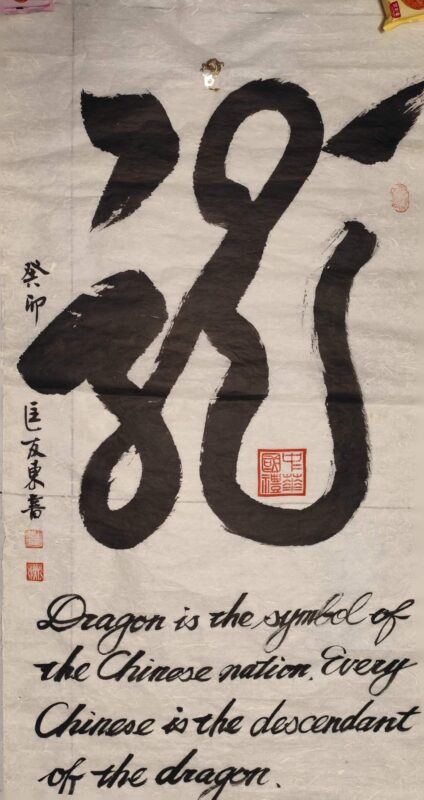 龍
癸卯 匡友東書
中華國禮
Dragon is the symbol of
the Chinese nation. Every
Chinese is the descendant
of the dragon.